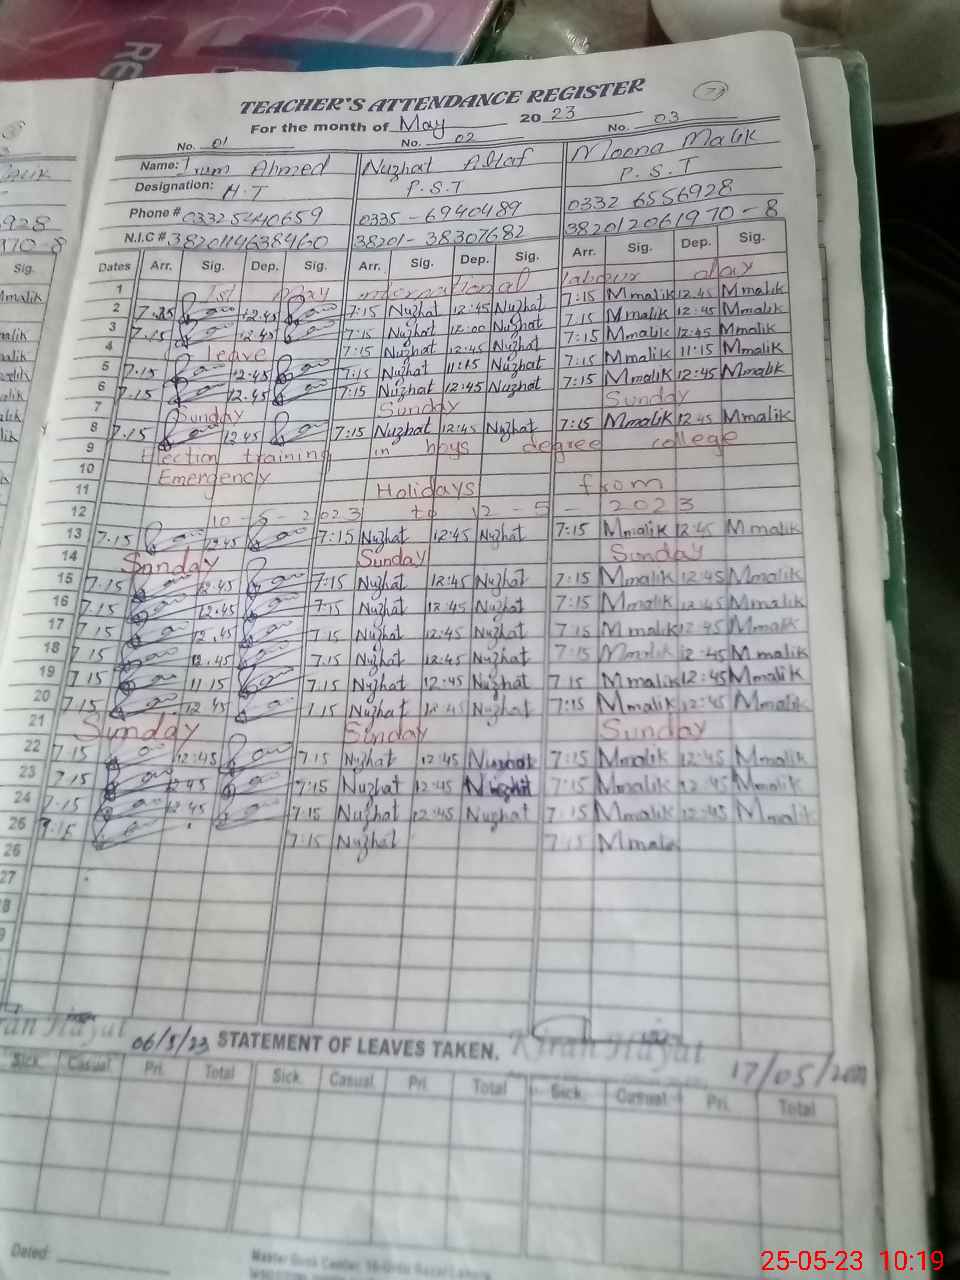 TEACHER'S ATTENDANCE REGISTER
For the month of May 2023
No. 01 No. 02 No. 03
Name: Irum Ahmed Nuzhat Altaf Moona Malik
Designation: H.T P.S.T P.S.T
Phone # 03325440659 0335-6940489 0332 6556928
N.I.C # 3820114638460 38201-38307682 382012061970-8
Dates Arr. Sig. Dep. Sig. Arr. Sig. Dep. Sig. Arr. Sig. Dep. Sig.
1 1st May international labour day
2 7.15 12.45 7:15 Nuzhat 12:45 Nuzhat 7:15 Mmalik 12.45 Mmalik
3 7.15 12.45 7:15 Nuzhat 12:00 Nuzhat 7.15 Mmalik 12:45 Mmalik
4 leave 7:15 Nuzhat 12:45 Nuzhat 7:15 Mmalik 12:45 Mmalik
5 7.15 12.45 7:15 Nuzhat 11:15 Nuzhat 7:15 Mmalik 11:15 Mmalik
6 7.15 12.45 7:15 Nuzhat 12:45 Nuzhat 7:15 Mmalik 12:45 Mmalik
7 Sunday Sunday Sunday
8 7.15 12.45 7:15 Nuzhat 12:45 Nuzhat 7:15 Mmalik 12.45 Mmalik
9 Election training in boys degree college
10 Emergency
11 Holidays from
12 10-5-2023 to 12-5-2023
13 7.15 12.45 7:15 Nuzhat 12:45 Nuzhat 7:15 Mmalik 12:45 Mmalik
14 Sunday Sunday Sunday
15 7.15 12.45 7:15 Nuzhat 12:45 Nuzhat 7:15 Mmalik 12:45 Mmalik
16 7.15 12.45 7:15 Nuzhat 12:45 Nuzhat 7:15 Mmalik 12:45 Mmalik
17 7.15 12.45 7.15 Nuzhat 12:45 Nuzhat 7.15 Mmalik 12:45 Mmalik
18 7.15 12.45 7.15 Nuzhat 12:45 Nuzhat 7:15 Mmalik 12:45 Mmalik
19 7.15 11.15 7.15 Nuzhat 12:45 Nuzhat 7.15 Mmalik 12:45 Mmalik
20 7.15 12.45 7.15 Nuzhat 12:45 Nuzhat 7:15 Mmalik 12:45 Mmalik
21 Sunday Sunday Sunday
22 7.15 12:45 7:15 Nuzhat 12:45 Nuzhat 7:15 Mmalik 12:45 Mmalik
23 7.15 12.45 7:15 Nuzhat 12:45 Nuzhat 7:15 Mmalik 12:45 Mmalik
24 7.15 12.45 7:15 Nuzhat 12:45 Nuzhat 7:15 Mmalik 12:45 Mmalik
25 7.15 7:15 Nuzhat 7:15
26
27
Kiran Hayat
06/5/23 STATEMENT OF LEAVES TAKEN. Kiran Hayat 17/05/
Sick. Casual Pri. Total Sick. Casual Pri. Total Sick. Casual Pri. Total
Dated:
25-05-23 10:19